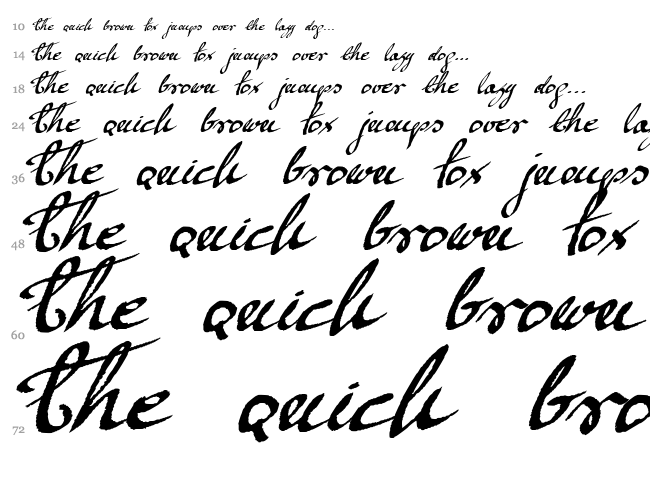 10 the quick brown fox jumps over the lazy dog...
14 the quick brown fox jumps over the lazy dog...
18 the quick brown fox jumps over the lazy dog...
24 the quick brown fox jumps over the la
36 the quick brown fox jumps
48 the quick brown fox
60 the quick brown
72 the quick bro